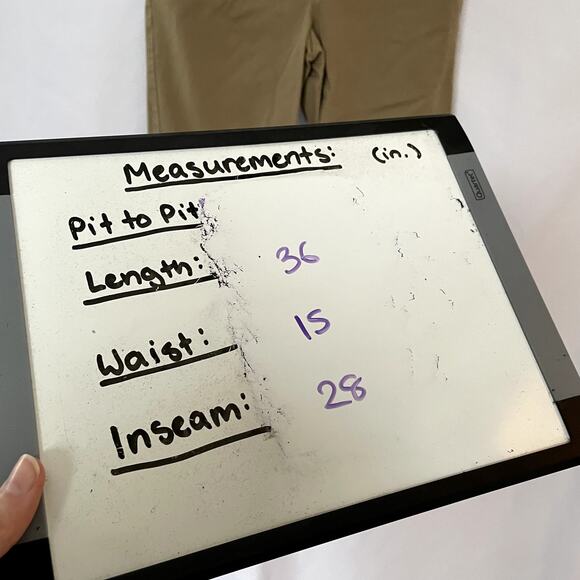 Measurements: (in.)
Pit to Pit
Length: 36
Waist: 15
Inseam: 28
Quartet